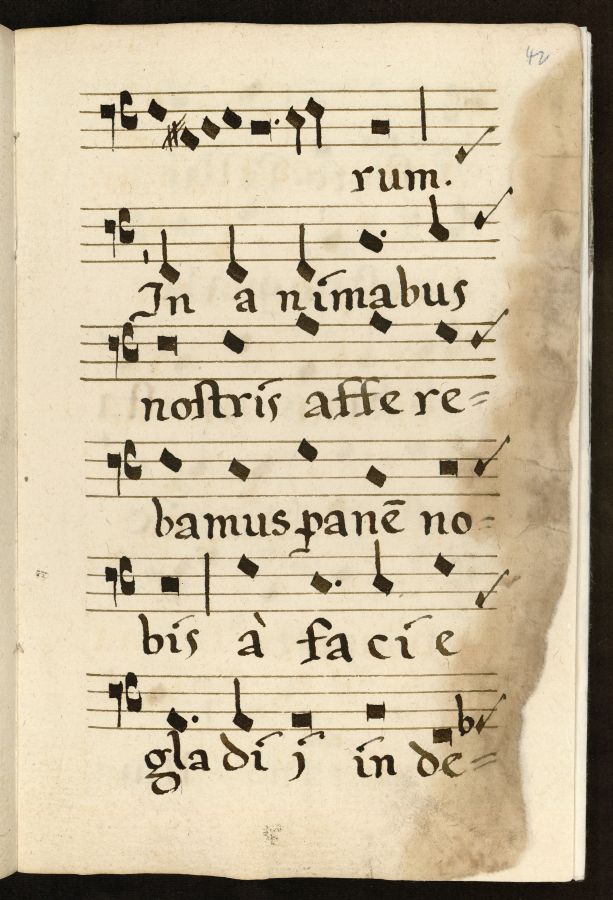 42
rum.
In animabus
nostris affere=
bamus panē no=
bis à facie
gladij in de=